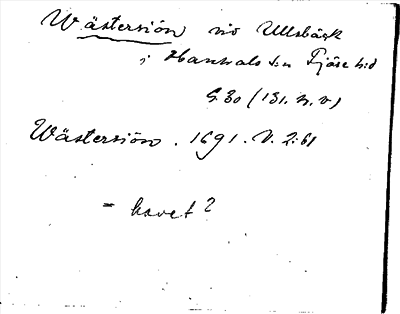 Wästersiön vid Ullsbäck
i Hanhals s:n Fjäre h:d
G 30 (131. n. v)
Wästersiön. 1691. V. 2:61
= havet?